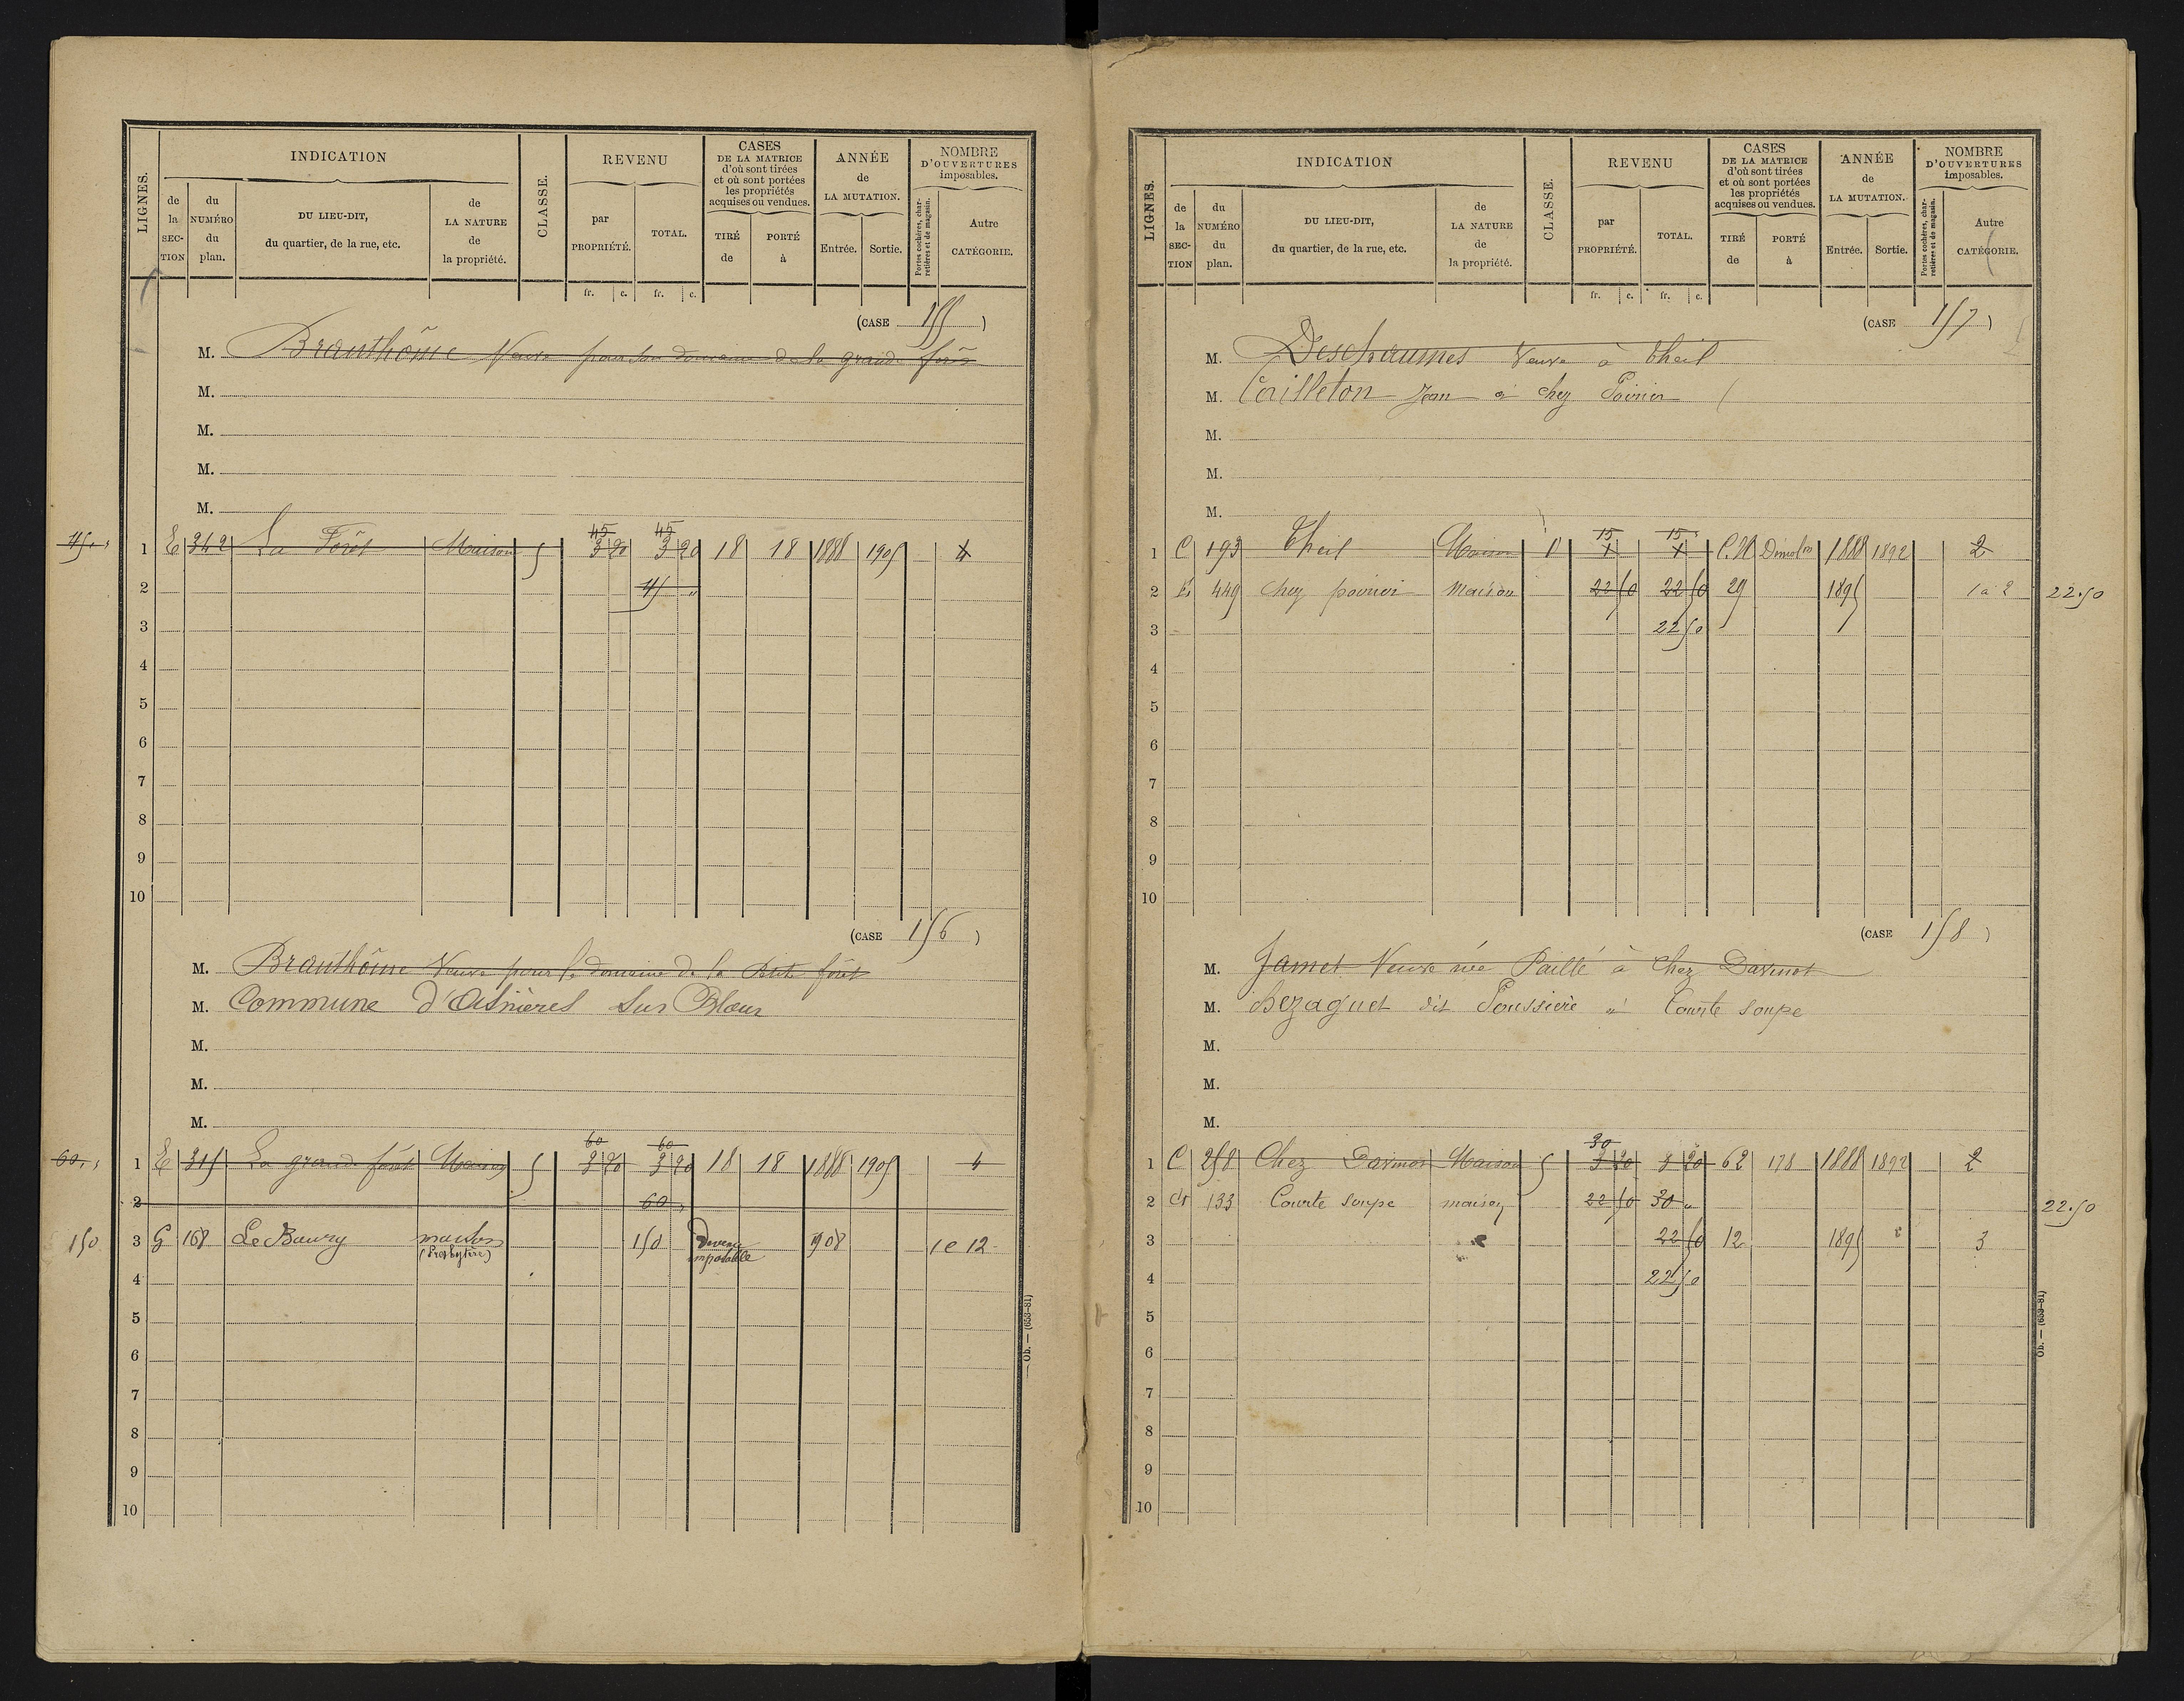 LIGNES.
INDICATION
de la SECTION
du NUMÉRO du plan.
DU LIEU-DIT, du quartier, de la rue, etc.
de LA NATURE de la propriété.
CLASSE.
REVENU
par PROPRIÉTÉ.
TOTAL.
CASES DE LA MATRICE d'où sont tirées et où sont portées les propriétés acquises ou vendues.
TIRÉ de
PORTÉ à
ANNÉE de LA MUTATION.
Entrée.
Sortie.
NOMBRE D'OUVERTURES imposables.
Portes cochères, charretières et de magasin.
Autre CATÉGORIE.
fr. c. fr. c.
(CASE 155)
M. Branthôme Veuve pour son domaine de la grande forêt
M.
M.
M.
M.
45 45
45 1 E 342 La Forêt Maison 5 3 20 3 20 18 18 1888 1905 4
2 45 "
3
4
5
6
7
8
9
10
(CASE 156)
M. Branthôme Veuve pour le domaine de la Petite forêt
M. Commune d'Asnières sur Blour
M.
M.
M.
60 60
60 1 E 315 La grande forêt Maison 5 3 20 3 20 18 18 1888 1905 4
2 60
150 3 G 168 Le Bourg maison (Presbytère) 150 Devenu imposable 1908 1 e 12
4
5
6
7
8
9
10
Ob. — (653-81)
LIGNES.
INDICATION
de la SECTION
du NUMÉRO du plan.
DU LIEU-DIT, du quartier, de la rue, etc.
de LA NATURE de la propriété.
CLASSE.
REVENU
par PROPRIÉTÉ.
TOTAL.
CASES DE LA MATRICE d'où sont tirées et où sont portées les propriétés acquises ou vendues.
TIRÉ de
PORTÉ à
ANNÉE de LA MUTATION.
Entrée.
Sortie.
NOMBRE D'OUVERTURES imposables.
Portes cochères, charretières et de magasin.
Autre CATÉGORIE.
fr. c. fr. c.
(CASE 157)
M. Deschaumes Veuve à Theil
M. Cailleton Jean à chez Poirier
M.
M.
M.
15 15
1 C 193 Theil Maison 1 1 C.N Démol 1888 1892 2
2 E 449 chez poirier maison 22 50 22 50 29 1895 1 a 2 22.50
3 22 50
4
5
6
7
8
9
10
(CASE 158)
M. Jamet Veuve née Paillé à Chez Davinot
M. Bezaguet dit Poussière à Courte soupe
M.
M.
M.
30
1 C 258 Chez Davinot Maison 5 3 20 3 20 62 178 1888 1892 2
2 133 Courte soupe maison 22 50 30 " 22.50
3 22 50 12 1895 3
4 22 50
5
6
7
8
9
10
Ob. — (653-81)